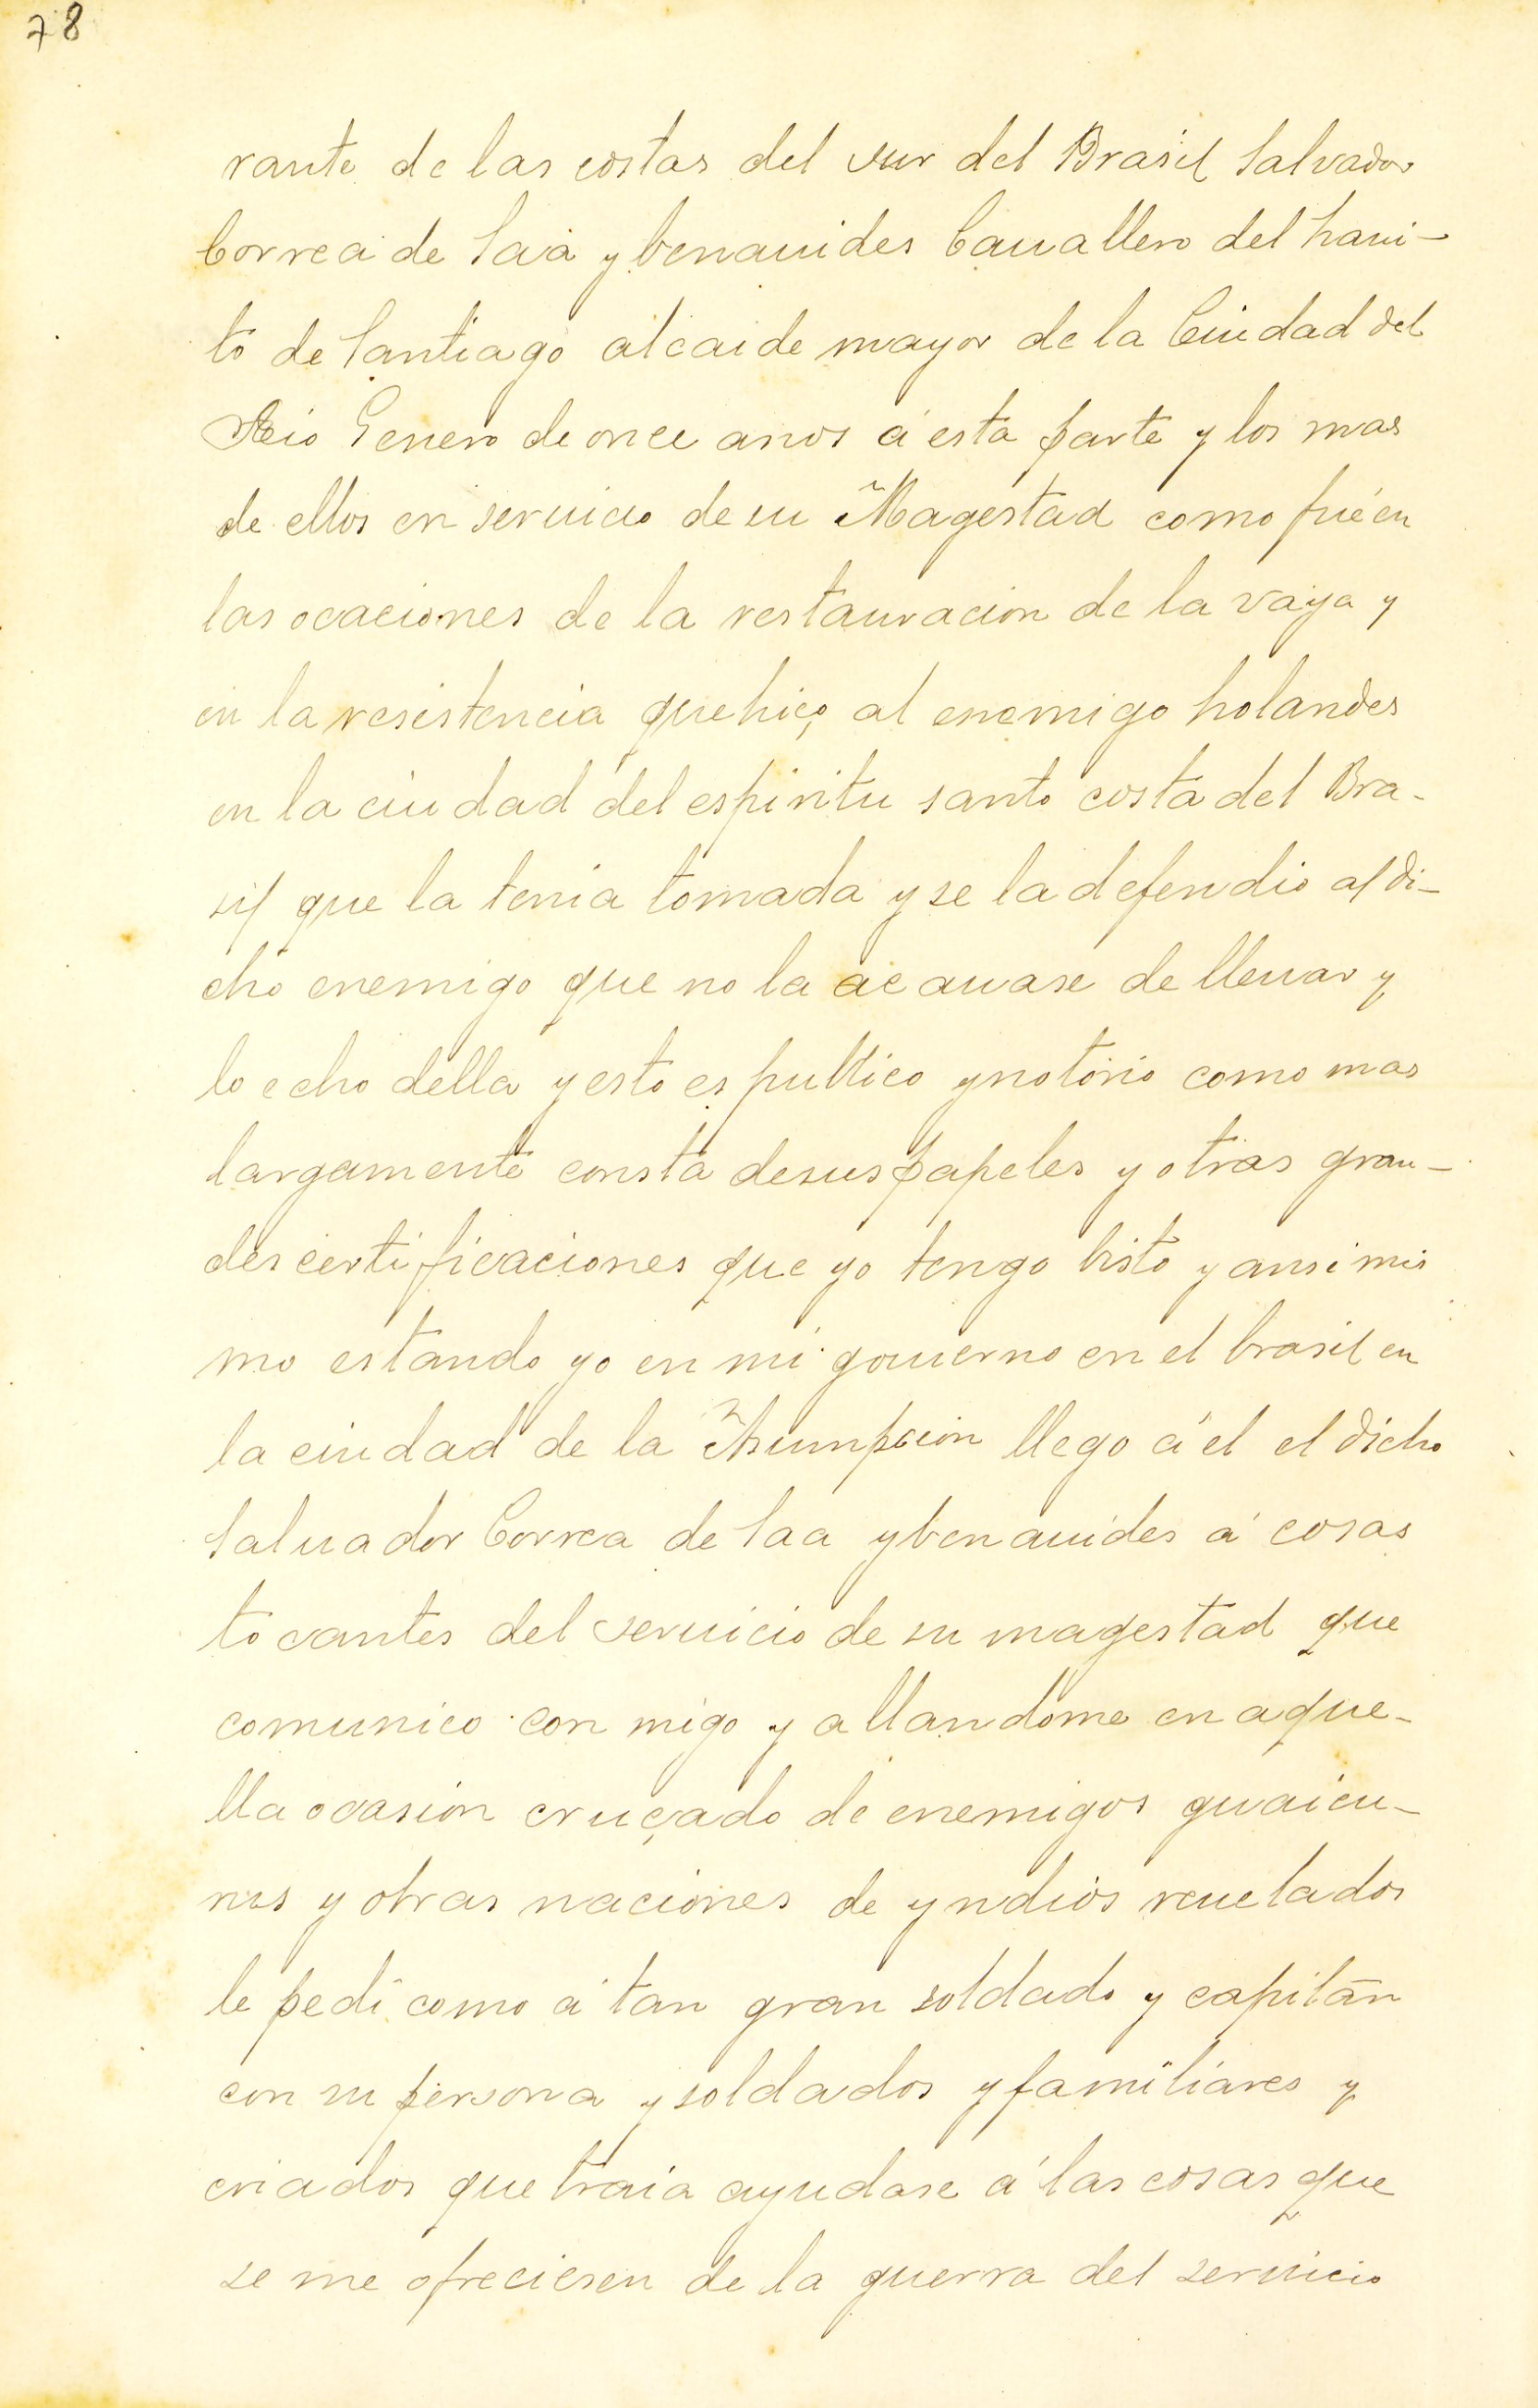 78
rante de las costas del sur del Brasil Salvador
Correa de Saa y benauides Cauallero del haui-
to de Santiago alcaide mayor de la Ciudad del
Rio Genero de once anos á esta parte y los mas
de ellos en seruicio de su Magestad como fué en
las ocaciones de la restauracion de la vaya y
en la resistencia que hiço al enemigo holandes
en la ciudad del espiritu santo costa del Bra-
sil que la tenia tomada y se la defendio al di-
cho enemigo que no la acauase de lleuar y
lo echo della y esto es publico y notorio como mas
largamente consta de sus papeles y otras gran-
des certificaciones que yo tengo bisto y ansimis
mo estando yo en mi gouierno en el brasil en
la ciudad de la Asumpcion llego á el el dicho
Saluador Correa de Saa y benauides á cosas
tocantes del seruicio de su magestad que
comunico con migo y allandome en aque-
lla ocasion cruçado de enemigos guaicu-
rus y otras naciones de yndios reuelados
le pedi como á tan gran soldado y capitan
con su persona y soldados y familiares y
criados que traia ayudase á las cosas que
se me ofreciesen de la guerra del seruicio